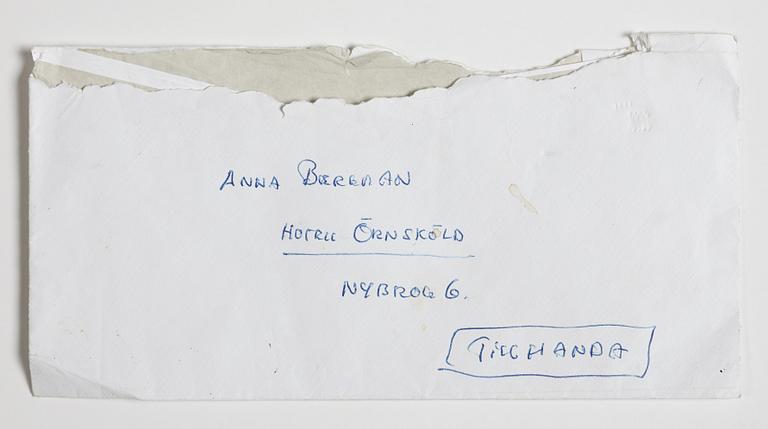 ANNA BERGMAN
HOTELL ÖRNSKÖLD
NYBROG 6.
TILLHANDA